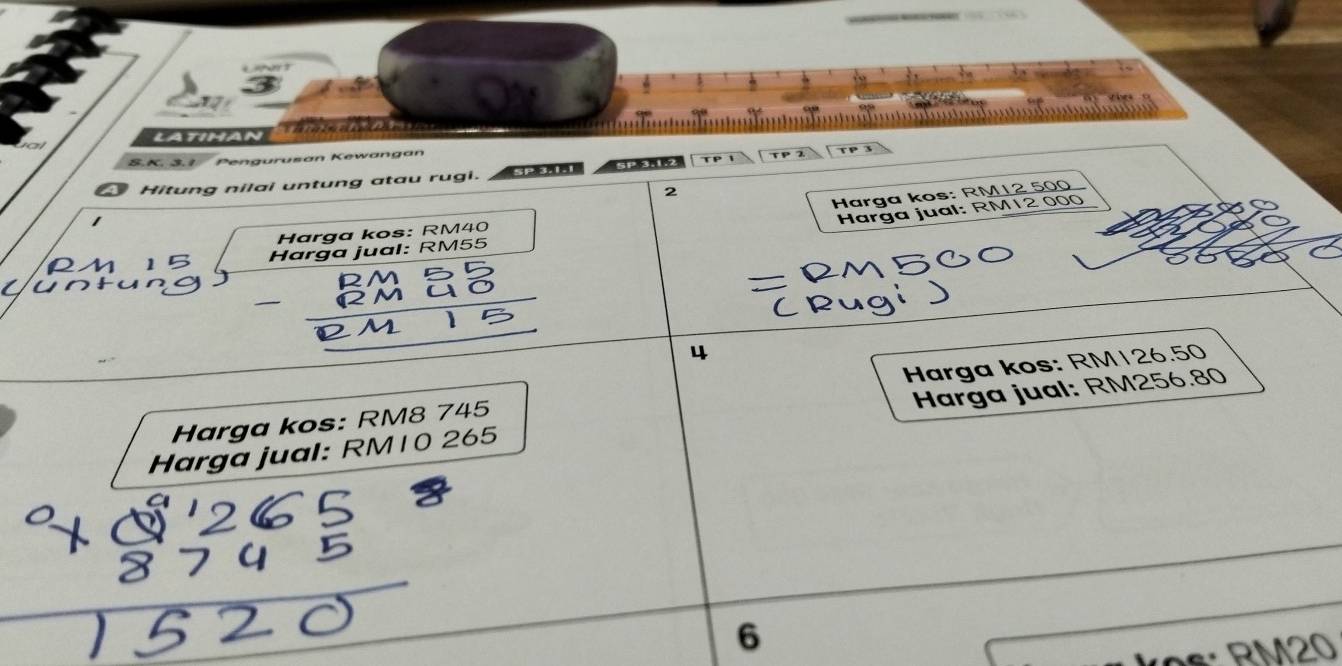 UNIT
3
LATIHAN
S.K. 3.1 Pengurusan Kewangan
A Hitung nilai untung atau rugi. SP 3.1.1 SP 3.1.2 TP 1 TP 2 TP 3
1
Harga kos: RM40
Harga jual: RM55
RM 15
(untung)
RM 55
- RM 40
RM 15
2
Harga kos: RM12 500
Harga jual: RM12 000
= RM500
(Rugi)
Harga kos: RM8 745
Harga jual: RM10 265
265
8745
1520
4
Harga kos: RM126.50
Harga jual: RM256.80
6
kos: RM20